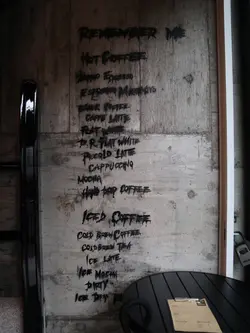 REMEMBER ME
HOT COFFEE
ESPRESSO
ESPRESSO MACCHIATO
COFFEE
CAFFE LATTE
FLAT WHITE
D.R. FLAT WHITE
PICCOLO LATTE
CAPPUCCINO
MOCHA
HAND DRIP COFFEE
ICED COFFEE
COLD BREW COFFEE
COLD BREW TEA
ICE LATTE
ICE MOCHA
DIRTY
ICE DRIP